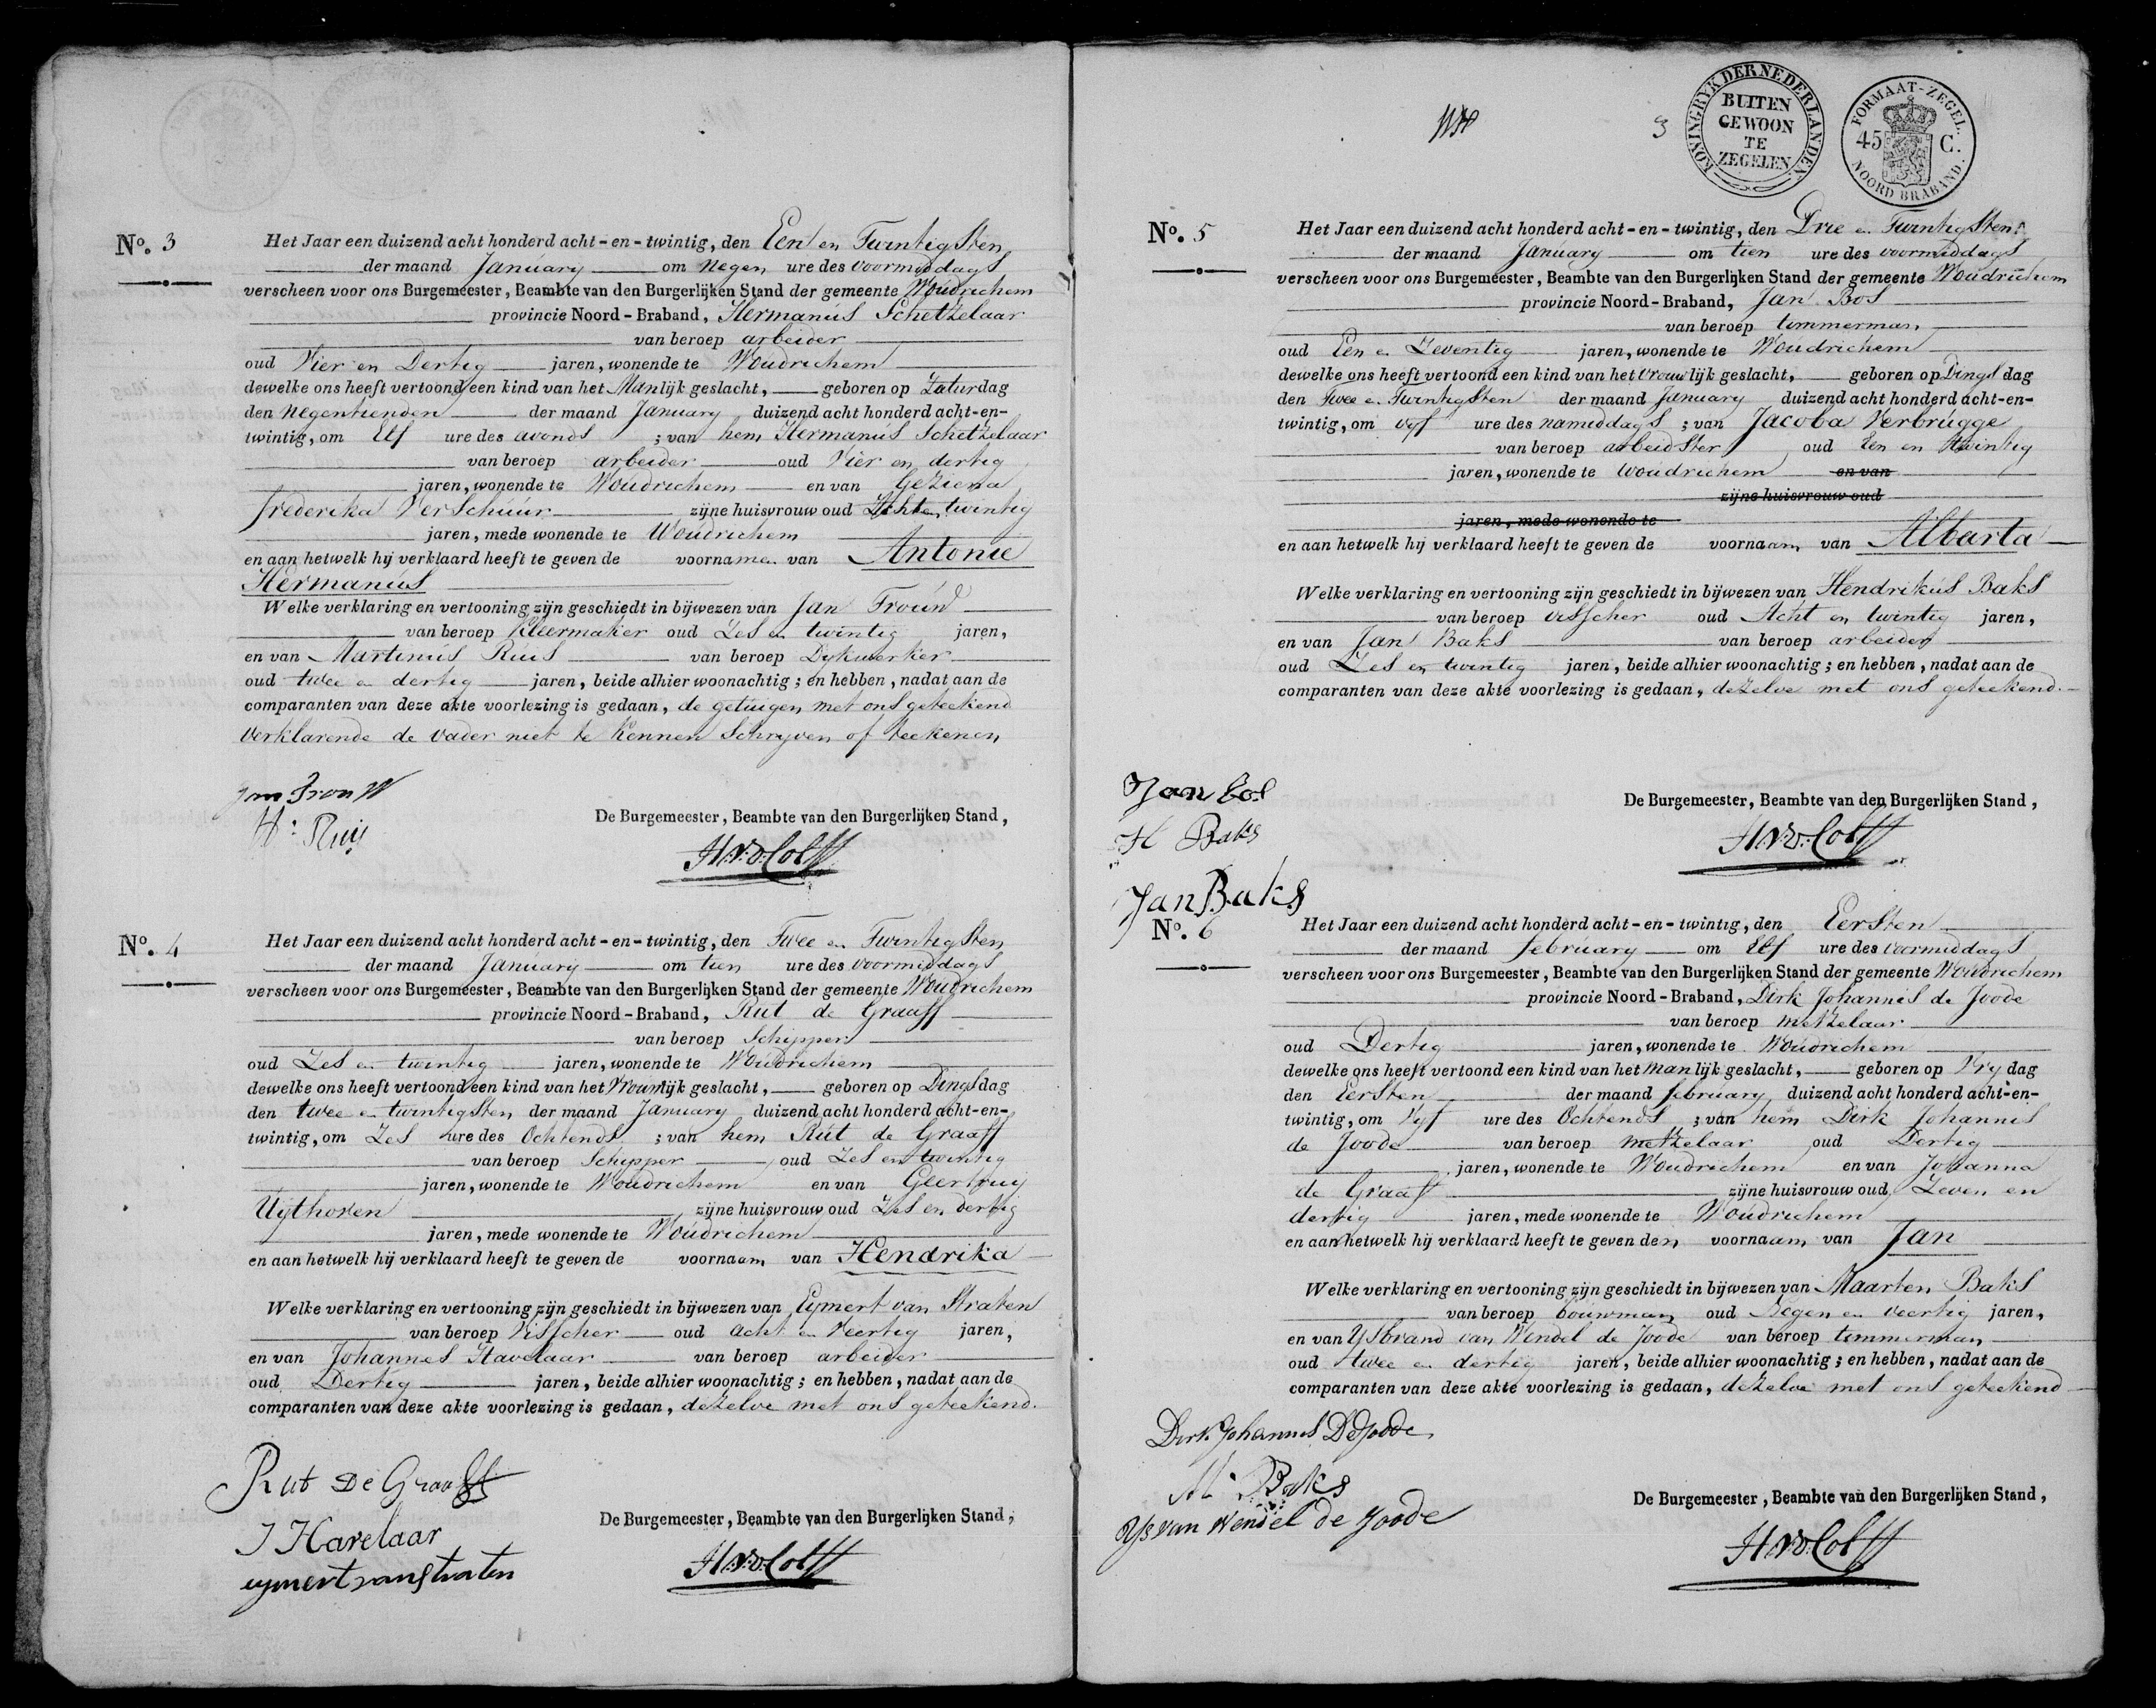 No. 3
Het Jaar een duizend acht honderd acht-en-twintig, den Een en Twintigsten
der maand January om negen ure des voormiddags
verscheen voor ons Burgemeester, Beambte van den Burgerlijken Stand der gemeente Woudrichem
provincie Noord-Braband, Hermanus Schetzelaar
van beroep arbeider
oud Vier en Dertig jaren, wonende te Woudrichem
dewelke ons heeft vertoond een kind van het Manlijk geslacht, geboren op Zaturdag
den negentienden der maand January duizend acht honderd acht-en-
twintig, om Elf ure des avonds ; van hem Hermanus Schetzelaar
van beroep arbeider oud Vier en dertig
jaren, wonende te Woudrichem en van Geziena
frederika VerSchuur zijne huisvrouw oud Acht en twintig
jaren, mede wonende te Woudrichem
en aan hetwelk hij verklaard heeft te geven de voornamen van Antonie
Hermanus
Welke verklaring en vertooning zijn geschiedt in bijwezen van Jan Trouw
van beroep Kleermaker oud Zes en twintig jaren,
en van Martinus Ruis van beroep Dykwerker
oud twee en dertig jaren, beide alhier woonachtig; en hebben, nadat aan de
comparanten van deze akte voorlezing is gedaan, de getuigen met ons geteekend
verklarende de vader niet te kennen Schryven of teekenen
De Burgemeester, Beambte van den Burgerlijken Stand,
HvdColff
No. 4
Het Jaar een duizend acht honderd acht-en-twintig, den Twee en Twintigsten
der maand January om tien ure des voormiddags
verscheen voor ons Burgemeester, Beambte van den Burgerlijken Stand der gemeente Woudrichem
provincie Noord-Braband, Rut de Graaff
van beroep Schipper
oud Zes en twintig jaren, wonende te Woudrichem
dewelke ons heeft vertoond een kind van het Vrouwlijk geslacht, geboren op Dingsdag
den twee en twintigsten der maand January duizend acht honderd acht-en-
twintig, om Zes ure des Ochtends ; van hem Rut de Graaff
van beroep Schipper oud Zes en twintig
jaren, wonende te Woudrichem en van Geertruy
Uythoven zijne huisvrouw oud Zes en dertig
jaren, mede wonende te Woudrichem
en aan hetwelk hij verklaard heeft te geven de voornaam van Hendrika
Welke verklaring en vertooning zijn geschiedt in bijwezen van Eymert van Straten
van beroep Visscher oud acht en Veertig jaren,
en van Johannes Havelaar van beroep arbeider
oud Dertig jaren, beide alhier woonachtig; en hebben, nadat aan de
comparanten van deze akte voorlezing is gedaan, dezelve met ons geteekend.
Rut De Graaff
J Havelaar
eymert van straten
De Burgemeester, Beambte van den Burgerlijken Stand,
HvdColff
3
KONINGRYK DER NEDERLANDEN
BUITEN
GEWOON
TE
ZEGELEN
FORMAAT-ZEGEL.
45 C.
NOORD BRABAND.
No. 5
Het Jaar een duizend acht honderd acht-en-twintig, den Drie en Twintigsten
der maand January om tien ure des voormiddags
verscheen voor ons Burgemeester, Beambte van den Burgerlijken Stand der gemeente Woudrichem
provincie Noord-Braband, Jan Bos
van beroep timmerman
oud Een en Zeventig jaren, wonende te Woudrichem
dewelke ons heeft vertoond een kind van het vrouwlijk geslacht, geboren op Dingsdag
den Twee en Twintigsten der maand January duizend acht honderd acht-en-
twintig, om vyf ure des namiddags ; van Jacoba Verbrugge
van beroep arbeidster oud Een en twintig
jaren, wonende te Woudrichem en van
zijne huisvrouw oud
jaren, mede wonende te
en aan hetwelk hij verklaard heeft te geven de voornaam van Albarta
Welke verklaring en vertooning zijn geschiedt in bijwezen van Hendrikus Baks
van beroep visscher oud Acht en twintig jaren,
en van Jan Baks van beroep arbeider
oud Zes en twintig jaren, beide alhier woonachtig; en hebben, nadat aan de
comparanten van deze akte voorlezing is gedaan, dezelve met ons geteekend.
Jan Bos
H Baks
Jan Baks
De Burgemeester, Beambte van den Burgerlijken Stand,
HvdColff
No. 6
Het Jaar een duizend acht honderd acht-en-twintig, den Eersten
der maand february om Elf ure des voormiddags
verscheen voor ons Burgemeester, Beambte van den Burgerlijken Stand der gemeente Woudrichem
provincie Noord-Braband, Dirk Johannis de Joode
van beroep metzelaar
oud Dertig jaren, wonende te Woudrichem
dewelke ons heeft vertoond een kind van het manlijk geslacht, geboren op Vrydag
den Eersten der maand february duizend acht honderd acht-en-
twintig, om Vyf ure des Ochtends ; van hem Dirk Johannis
de Joode van beroep metzelaar oud Dertig
jaren, wonende te Woudrichem en van Johanna
de Graaf zijne huisvrouw oud Zeven en
dertig jaren, mede wonende te Woudrichem
en aan hetwelk hij verklaard heeft te geven den voornaam van Jan
Welke verklaring en vertooning zijn geschiedt in bijwezen van Maarten Baks
van beroep bouwman oud Negen en veertig jaren,
en van Ysbrand van Wendel de Joode van beroep timmerman
oud twee en dertig jaren, beide alhier woonachtig; en hebben, nadat aan de
comparanten van deze akte voorlezing is gedaan, dezelve met ons geteekend
Dirk Johannis De Joode
M: Baks
Ys van Wendel de Joode
De Burgemeester, Beambte van den Burgerlijken Stand,
HvdColff